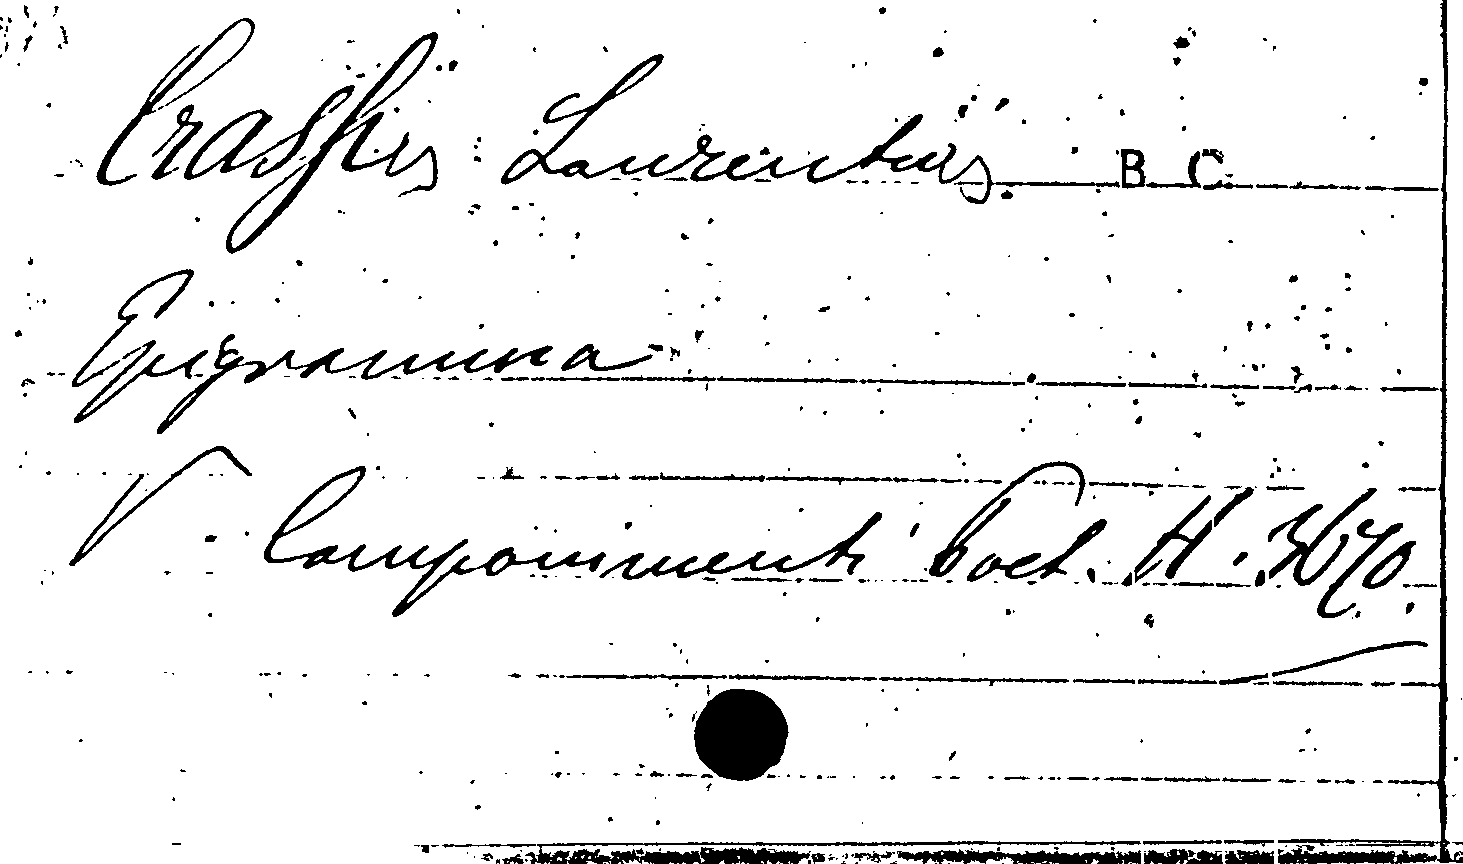 Crassus Laurentius. B C
Epigramma
V. Componimenti Poet. H. 3670.